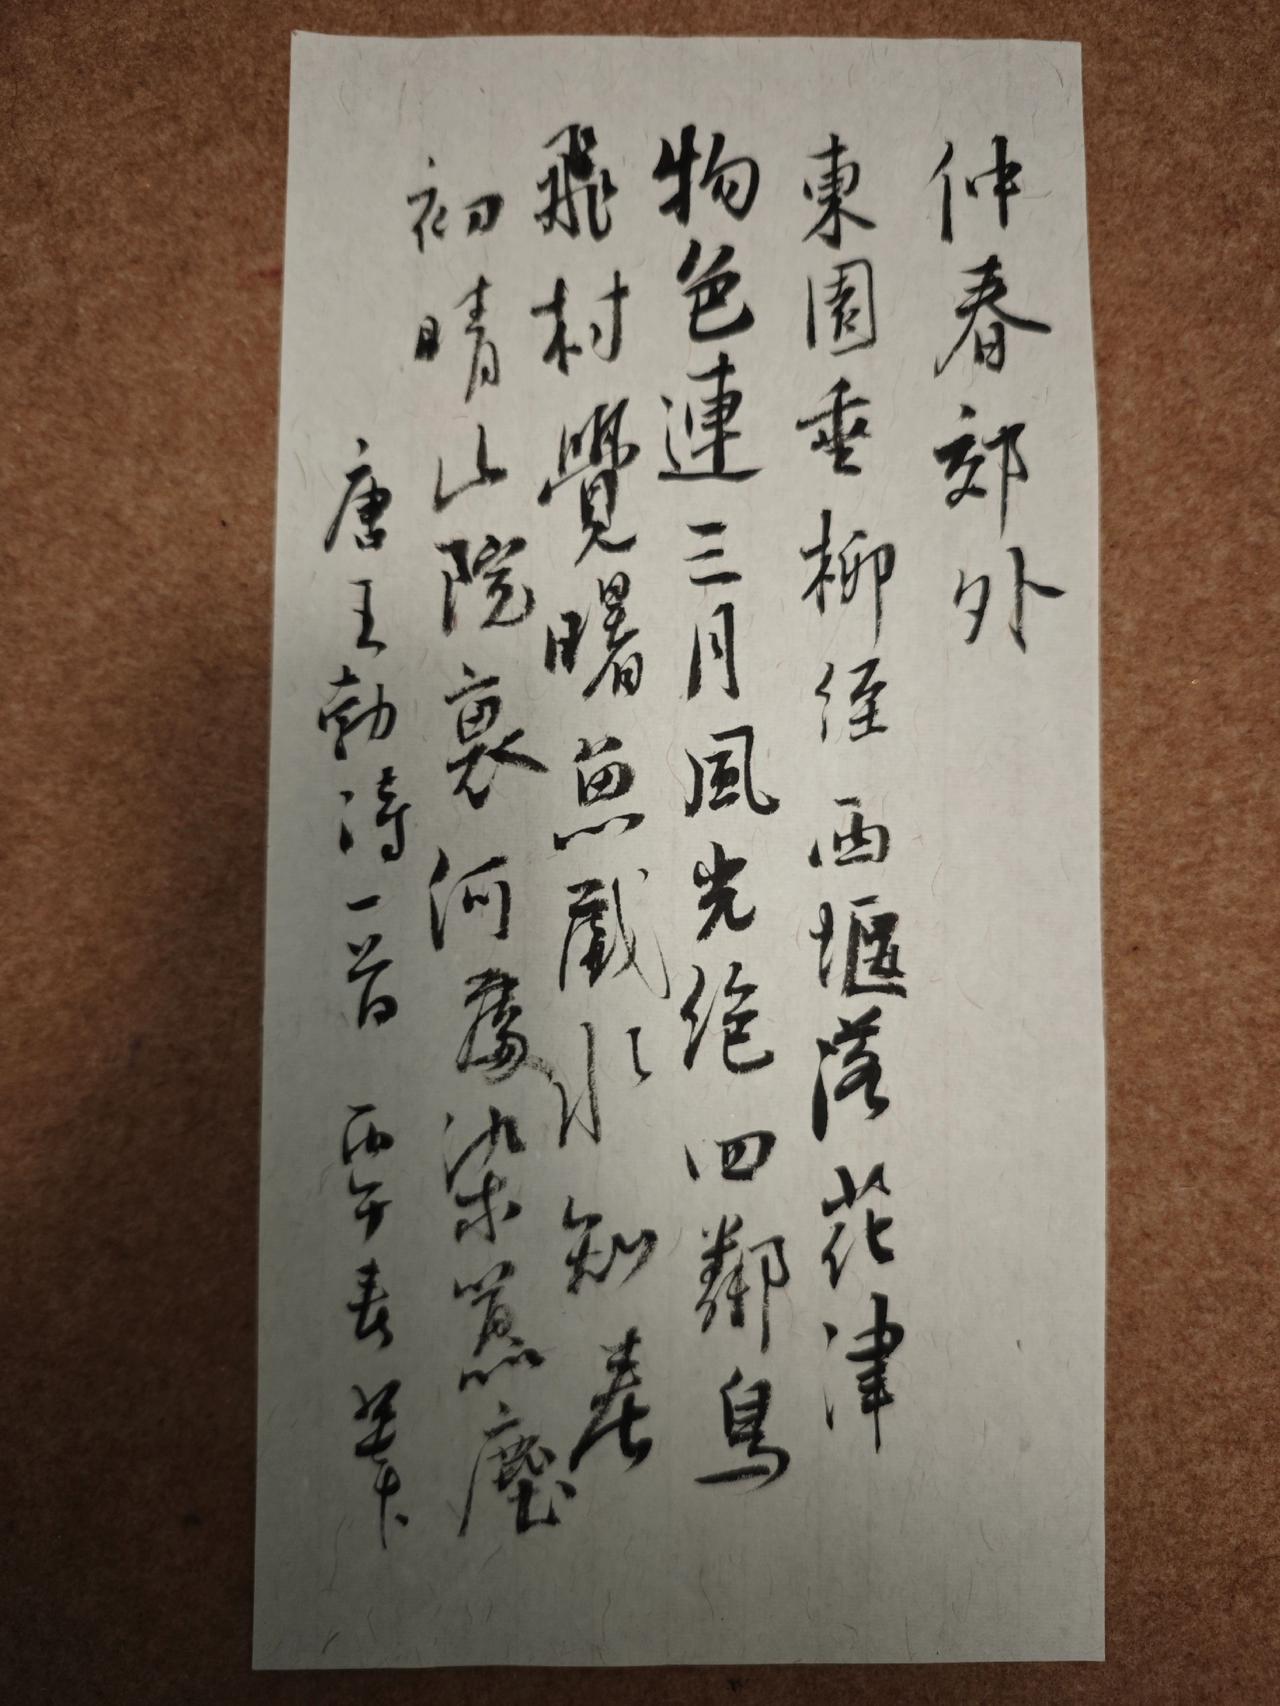 仲春郊外
東園垂柳徑西堰落花津
物色連三月風光絶四鄰鳥
飛村覺曙魚戲水知春
初晴山院裏何處染囂塵
唐王勃詩一首 丙午春 筆